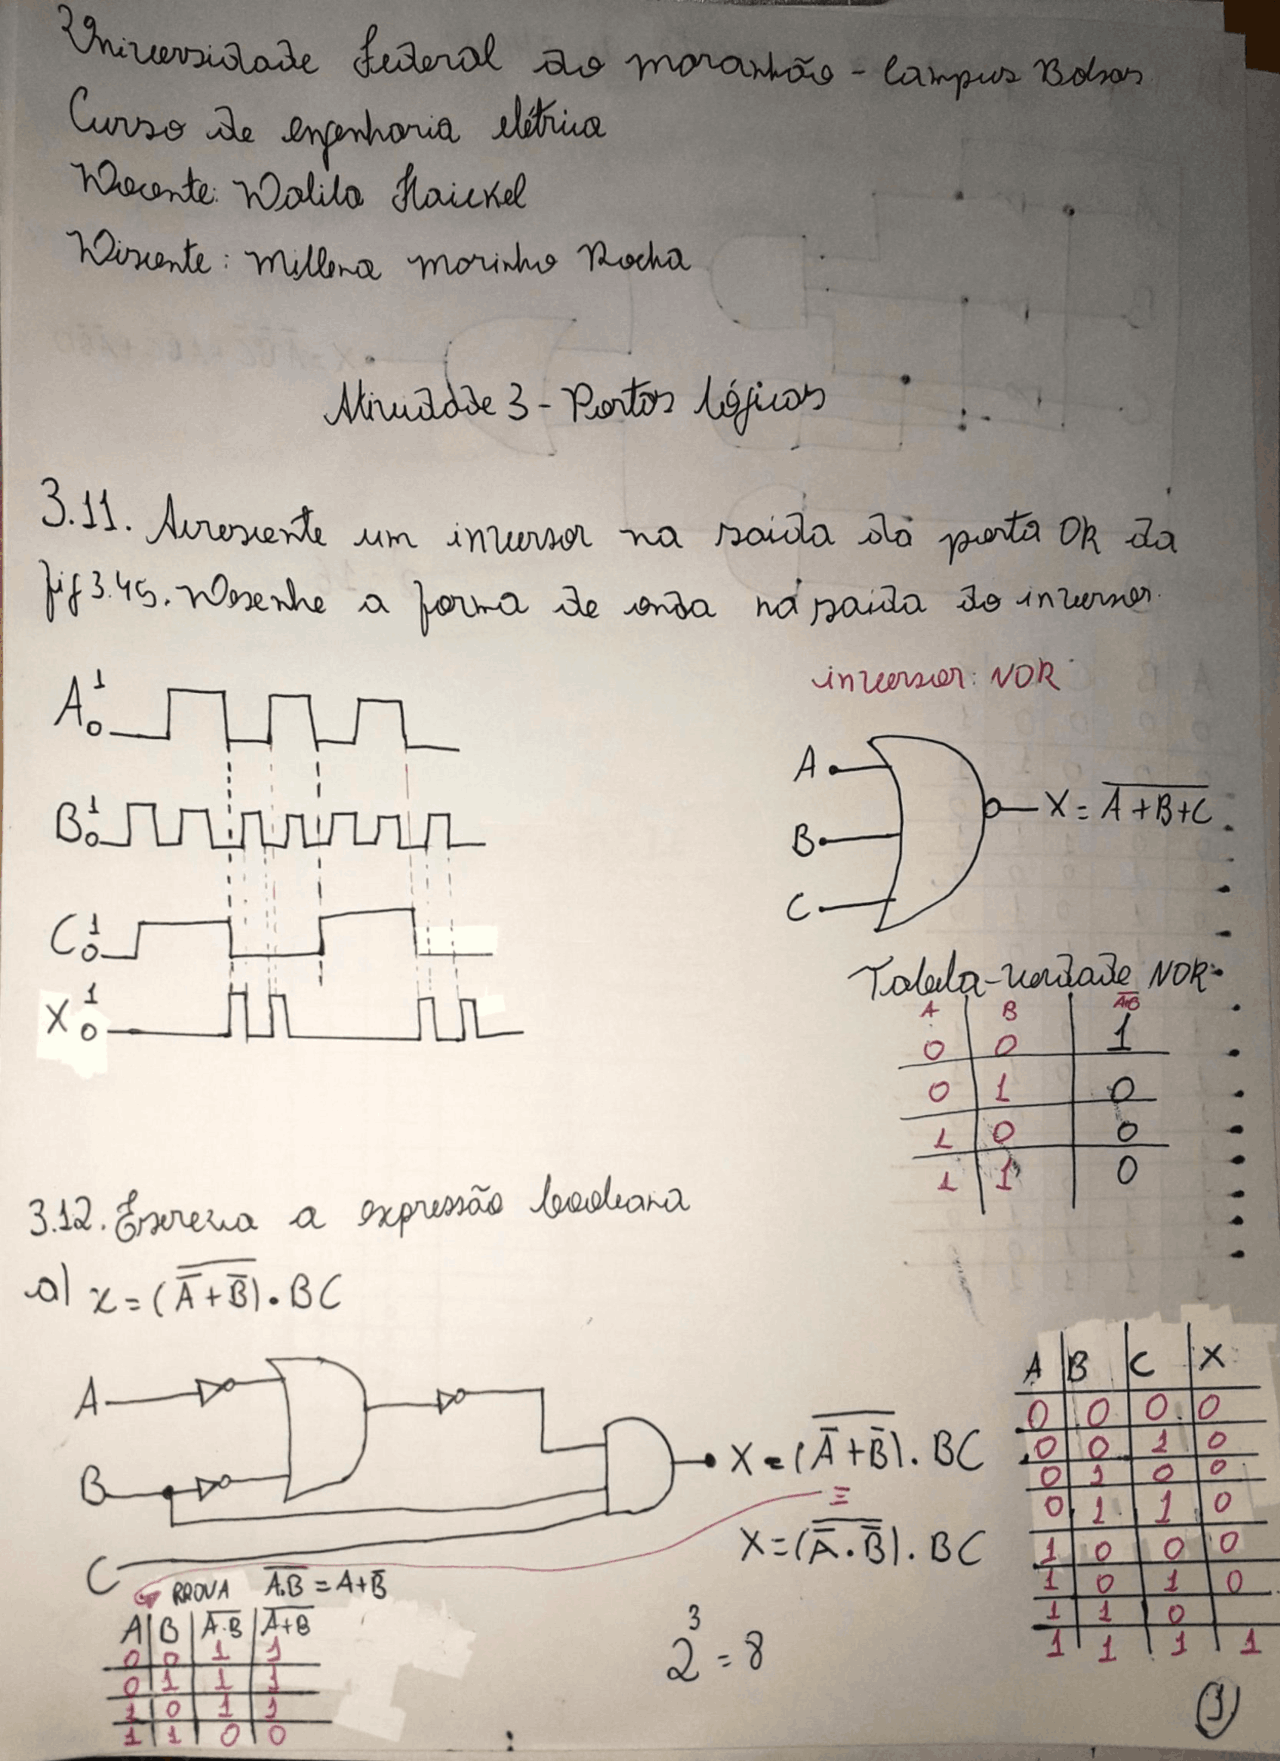 Universidade Federal do Maranhão - Campus Balsas
Curso de engenharia elétrica
Docente: Dalila Haickel
Discente: Millena Marinho Rocha
Atividade 3 - Portas lógicas
3.11. Acrescente um inversor na saída da porta OR da
fig 3.45. Desenhe a forma de onda na saída do inversor.
inversor: NOR
A 1 0
B 1 0
C 1 0
X 1 0
A
B
C
X = \overline{A+B+C}
Tabela-verdade NOR
A B \overline{A+B}
0 0 1
0 1 0
1 0 0
1 1 0
3.12. Escreva a expressão booleana
a) x = (\overline{\overline{A}+\overline{B}}) . BC
A
B
C
X = (\overline{\overline{A}+\overline{B}}) . BC
≡
X = (\overline{\overline{A}.\overline{B}}) . BC
A B C X
0 0 0 0
0 0 1 0
0 1 0 0
0 1 1 0
1 0 0 0
1 0 1 0
1 1 0
1 1 1 1
PROVA \overline{A.B} = A+\overline{B}
A B \overline{A.B} \overline{A+B}
0 0 1 1
0 1 1 1
1 0 1 1
1 1 0 0
2³ = 8
1